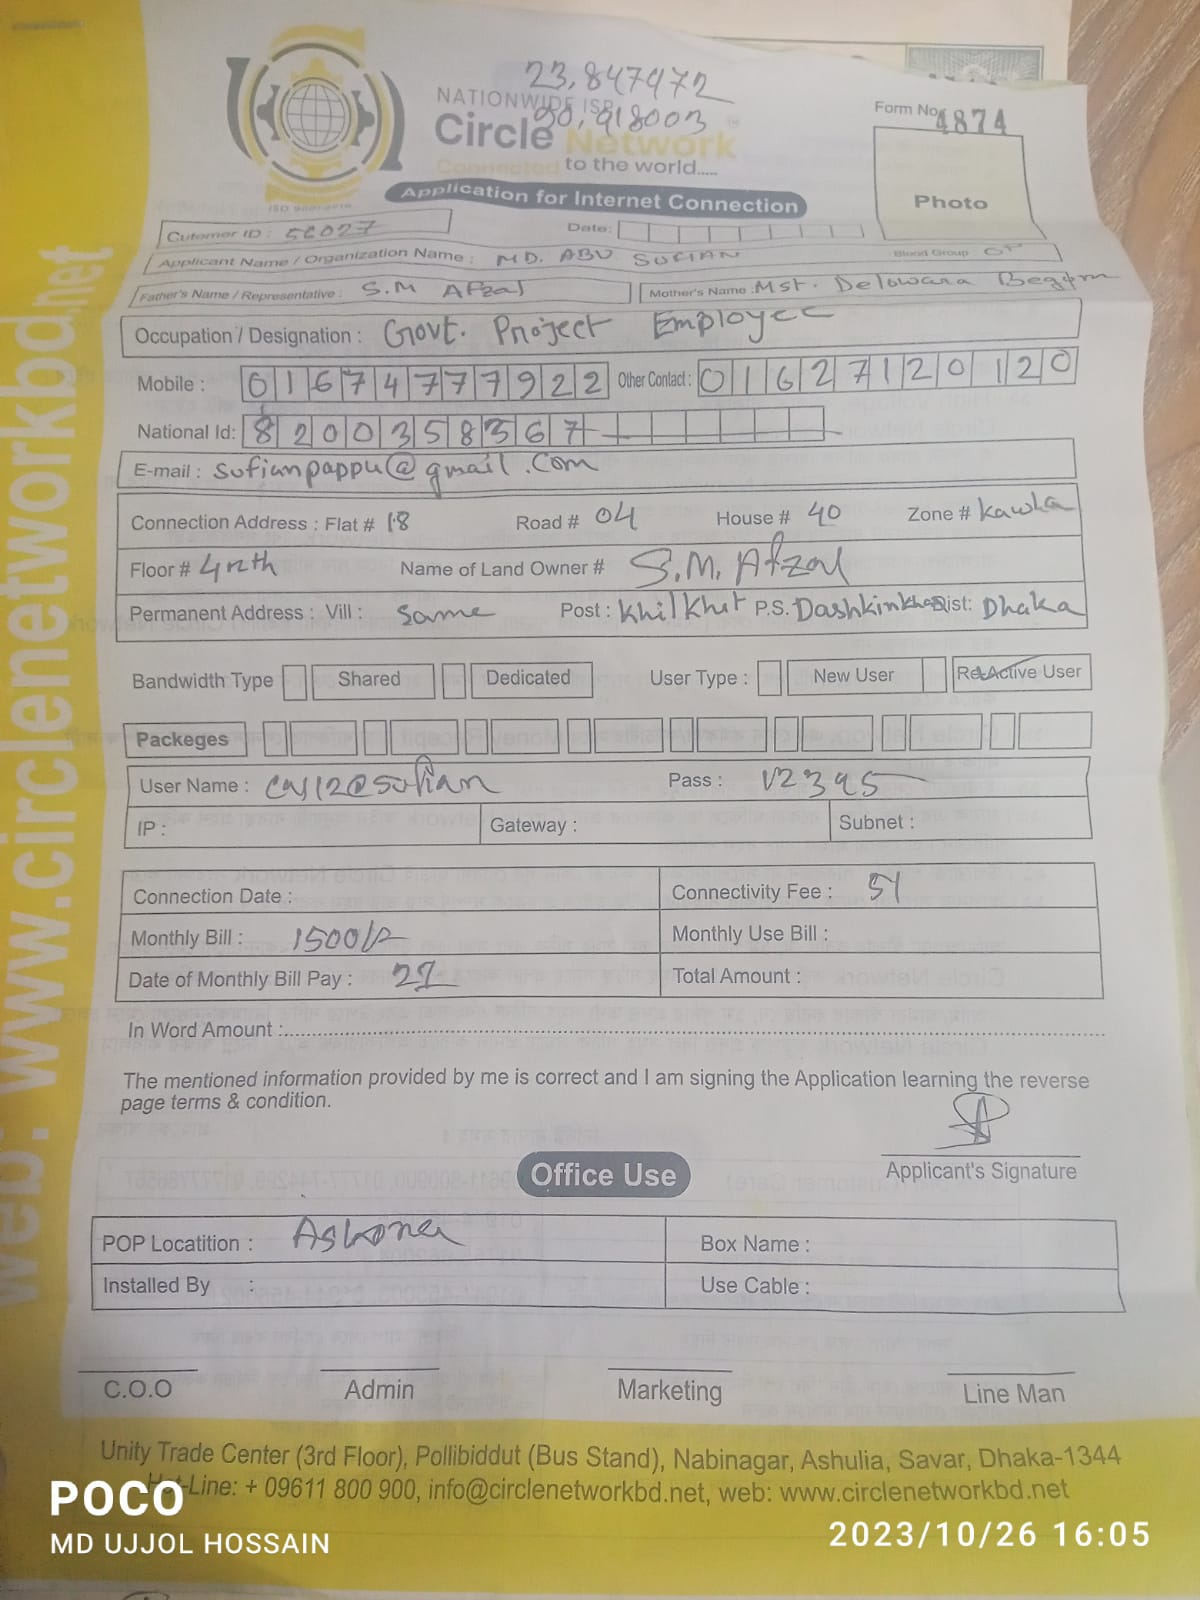 23.847472
NATIONWIDE ISP
90,918003
Circle Network
Connected to the world.....
Form No. 4874
Photo
ISO 9001:2015
Application for Internet Connection
Cutomer ID : 5C027
Date:
Applicant Name / Organization Name : MD. ABU SUFIAN
Blood Group
Father's Name / Representative : S.M Afzal
Mother's Name : Mst. Delowara Begum
Occupation / Designation : Govt. Project Employee
Mobile : 01674777922 Other Contact : 01627120120
National Id: 8200358367
E-mail : sufianpappu@gmail.com
Connection Address : Flat # Road # 04 House # 40 Zone # Kawla
Floor # Name of Land Owner # S.M. Afzal
Permanent Address : Vill : Same Post : Khilkhet P.S. Dashkinkhan Dist: Dhaka
Bandwidth Type Shared Dedicated User Type : New User Re-Active User
Packeges
User Name : Pass : 12395
IP : Gateway : Subnet :
Connection Date : Connectivity Fee :
Monthly Bill : 1500/= Monthly Use Bill :
Date of Monthly Bill Pay : Total Amount :
In Word Amount :
The mentioned information provided by me is correct and I am signing the Application learning the reverse
page terms & condition.
Applicant's Signature
Office Use
POP Locatition : Askona Box Name :
Installed By : Use Cable :
C.O.O Admin Marketing Line Man
Unity Trade Center (3rd Floor), Pollibiddut (Bus Stand), Nabinagar, Ashulia, Savar, Dhaka-1344
Hot-Line: + 09611 800 900, info@circlenetworkbd.net, web: www.circlenetworkbd.net
web: www.circlenetworkbd.net
POCO
MD UJJOL HOSSAIN
2023/10/26 16:05